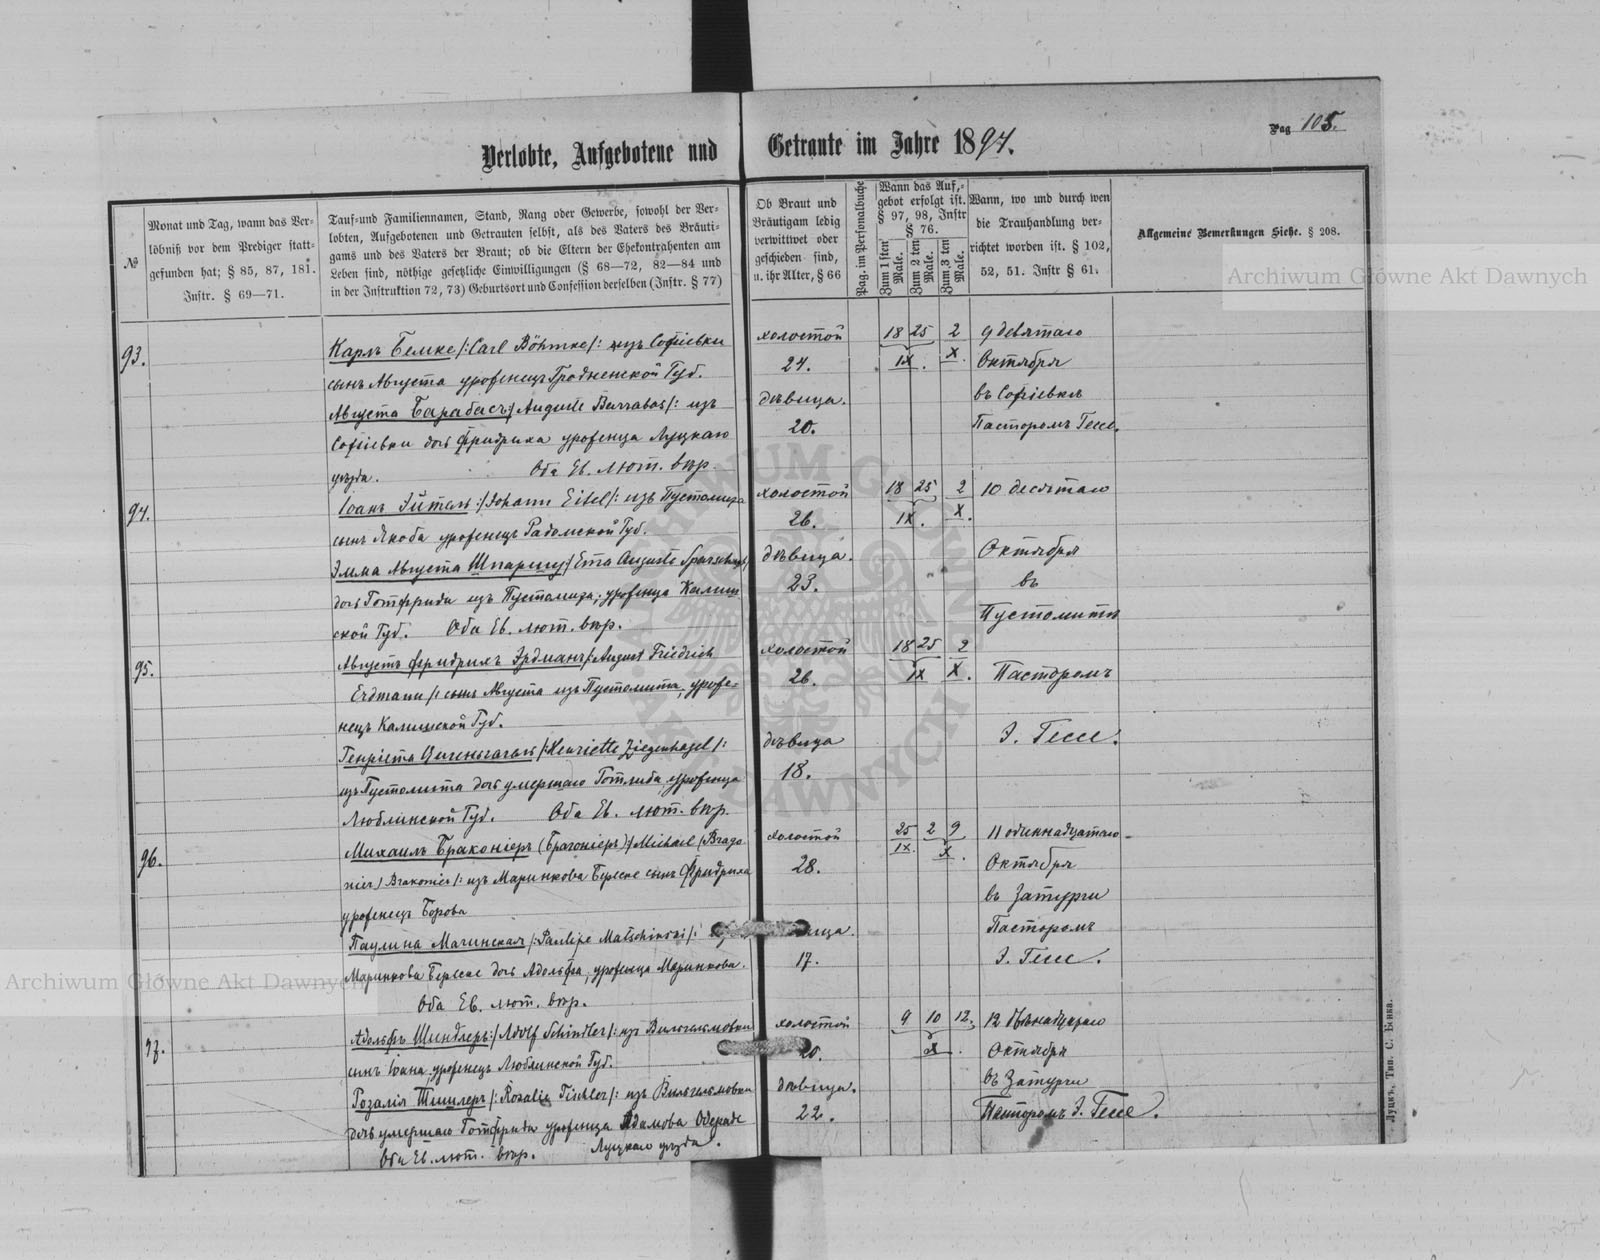 Verlobte, Aufgebotene und Getraute im Jahre 1894.
Pag 105.
№
Monat und Tag, wann das Ver-
löbniß vor dem Prediger statt-
gefunden hat; § 85, 87, 181.
Instr. § 69—71.
Tauf-und Familiennamen, Stand, Rang oder Gewerbe, sowohl der Ver-
lobten, Aufgebotenen und Getrauten selbst, als des Vaters des Bräuti-
gams und des Vaters der Braut; ob die Eltern der Ehekontrahenten am
Leben sind, nöthige gesetzliche Einwilligungen (§ 68—72, 82—84 und
in der Instruktion 72, 73) Geburtsort und Confession derselben (Instr. § 77)
Ob Braut und
Bräutigam ledig
verwittwet oder
geschieden sind,
u. ihr Alter, § 66
Pag. im Personalbuche
Wann das Auf-
gebot erfolgt ist.
§ 97, 98, Instr
§ 76.
Zum 1 sten Male.
Zum 2 ten Male.
Zum 3 ten Male.
Wann, wo und durch wen
die Trauhandlung ver-
richtet worden ist. § 102,
52, 51. Instr § 61.
Allgemeine Bemerkungen Siehe. § 208.
Archiwum Główne Akt Dawnych
93.
Карлъ Бемке /: Carl Böhmke /: изъ Софіевки
сынъ Августа уроженецъ Гродненской Губ.
Августа Барабасъ /: Auguste Barrabas /: изъ
Софіевки дочь Фридриха уроженца Луцкаго
уѣзда. Оба Ев. лют. вѣр.
холостой
24.
дѣвица.
20.
18 25 2
IX. X.
9 девятаго
Октября
въ Софіевкѣ
Пасторомъ Гессе.
94.
Іоанъ Эйтель /: Johann Eitel /: изъ Пустомита
сынъ Якоба уроженецъ Радомской Губ.
Эмма Августа Шпаршу /: Ema Auguste
дочь Готфрида изъ Пустомита, уроженца Калиш
ской Губ. Оба Ев. лют. вѣр.
холостой
26.
дѣвица.
23.
18 25 2
IX. X.
10 десятаго
Октября
въ
Пустомитѣ
95.
Августъ Фридрихъ Эрдманъ /: August Friedrich
Erdmann /: сынъ Августа изъ Пустомита, уроже-
нецъ Калишской Губ.
Генріета Цигенгагель /: Henriette Ziegenhagel /:
изъ Пустомита дочь умершаго Готлиба, уроженца
Люблинской Губ. Оба Ев. лют. вѣр.
холостой
26.
дѣвица
18.
18 25 2
IX X.
Пасторомъ
Э. Гессе.
96.
Михаилъ Браконіеръ (Брагоніеръ) /: Michael (Brago
nier) Brakonier /: изъ Маринкова Береске сынъ Фридриха
уроженецъ Борова
Паулина Мачинская /: Pauline Matschinski /:
Маринкова Береске дочь Адольфа, уроженца Маринкова.
Оба Ев. лют. вѣр.
холостой
28.
17.
25 2 9
IX. X.
11 одиннадцатаго
Октября
въ Затурги
Пасторомъ
Э. Гессе.
Archiwum Główne Akt Dawnych
97.
Адольфъ Шиндлеръ /: Adolf Schindler /: изъ Вильгельмовки
сынъ Іоана, уроженецъ Люблинской Губ.
Розалія Тишлеръ /: Rosalie Tischler /: изъ Вильгельмовки
дочь умершаго Готфрида уроженца Адамова
Оба Ев. лют. вѣр. Луцкаго уѣзда.
холостой
20.
дѣвица.
22.
9 10 12.
X.
12 двѣнадцатаго
Октября
въ Затурги
Пасторомъ Э. Гессе.
Луцкъ, Тип. С. Бенка.